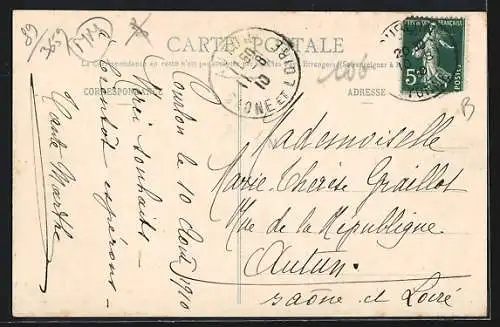 89
3659
CARTE POSTALE
La Correspondance au recto n'est pas acceptée par tous les Pays Étrangers (Se renseigner à la Poste)
CORRESPONDANCE
ADRESSE
106
5c
POSTES
SAONE ET LOIRE
10
Tourlon le 10 Août 1910
Merci souhaits –
à bientôt espérons –
Tante Marthe
Mademoiselle
Marie-Thérèse Graillot
Rue de la République
Autun.
Saône et Loire
B